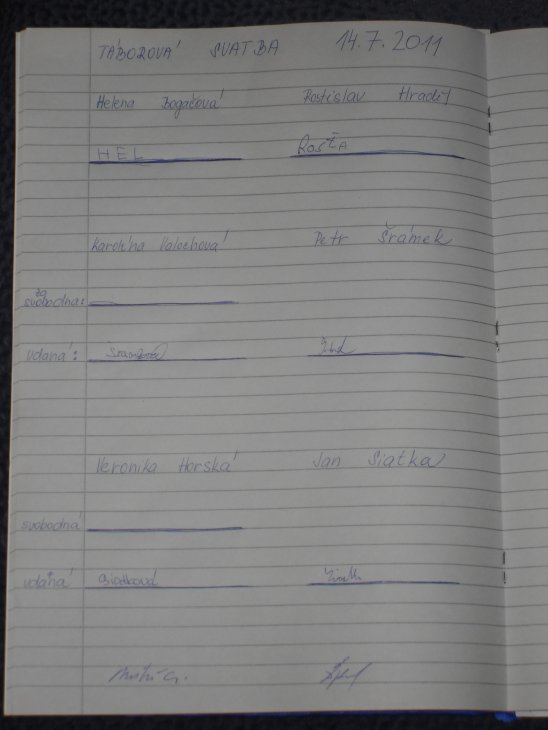 TÁBOROVÁ SVATBA 14.7.2011
Helena Bogačová Rostislav Hradil
HEL Rosťa
Karolína Valochová Petr Šrámek
za svobodna:
vdaná: Šramková
Veronika Horská Jan Siatka
svobodná
vdaná Siatková